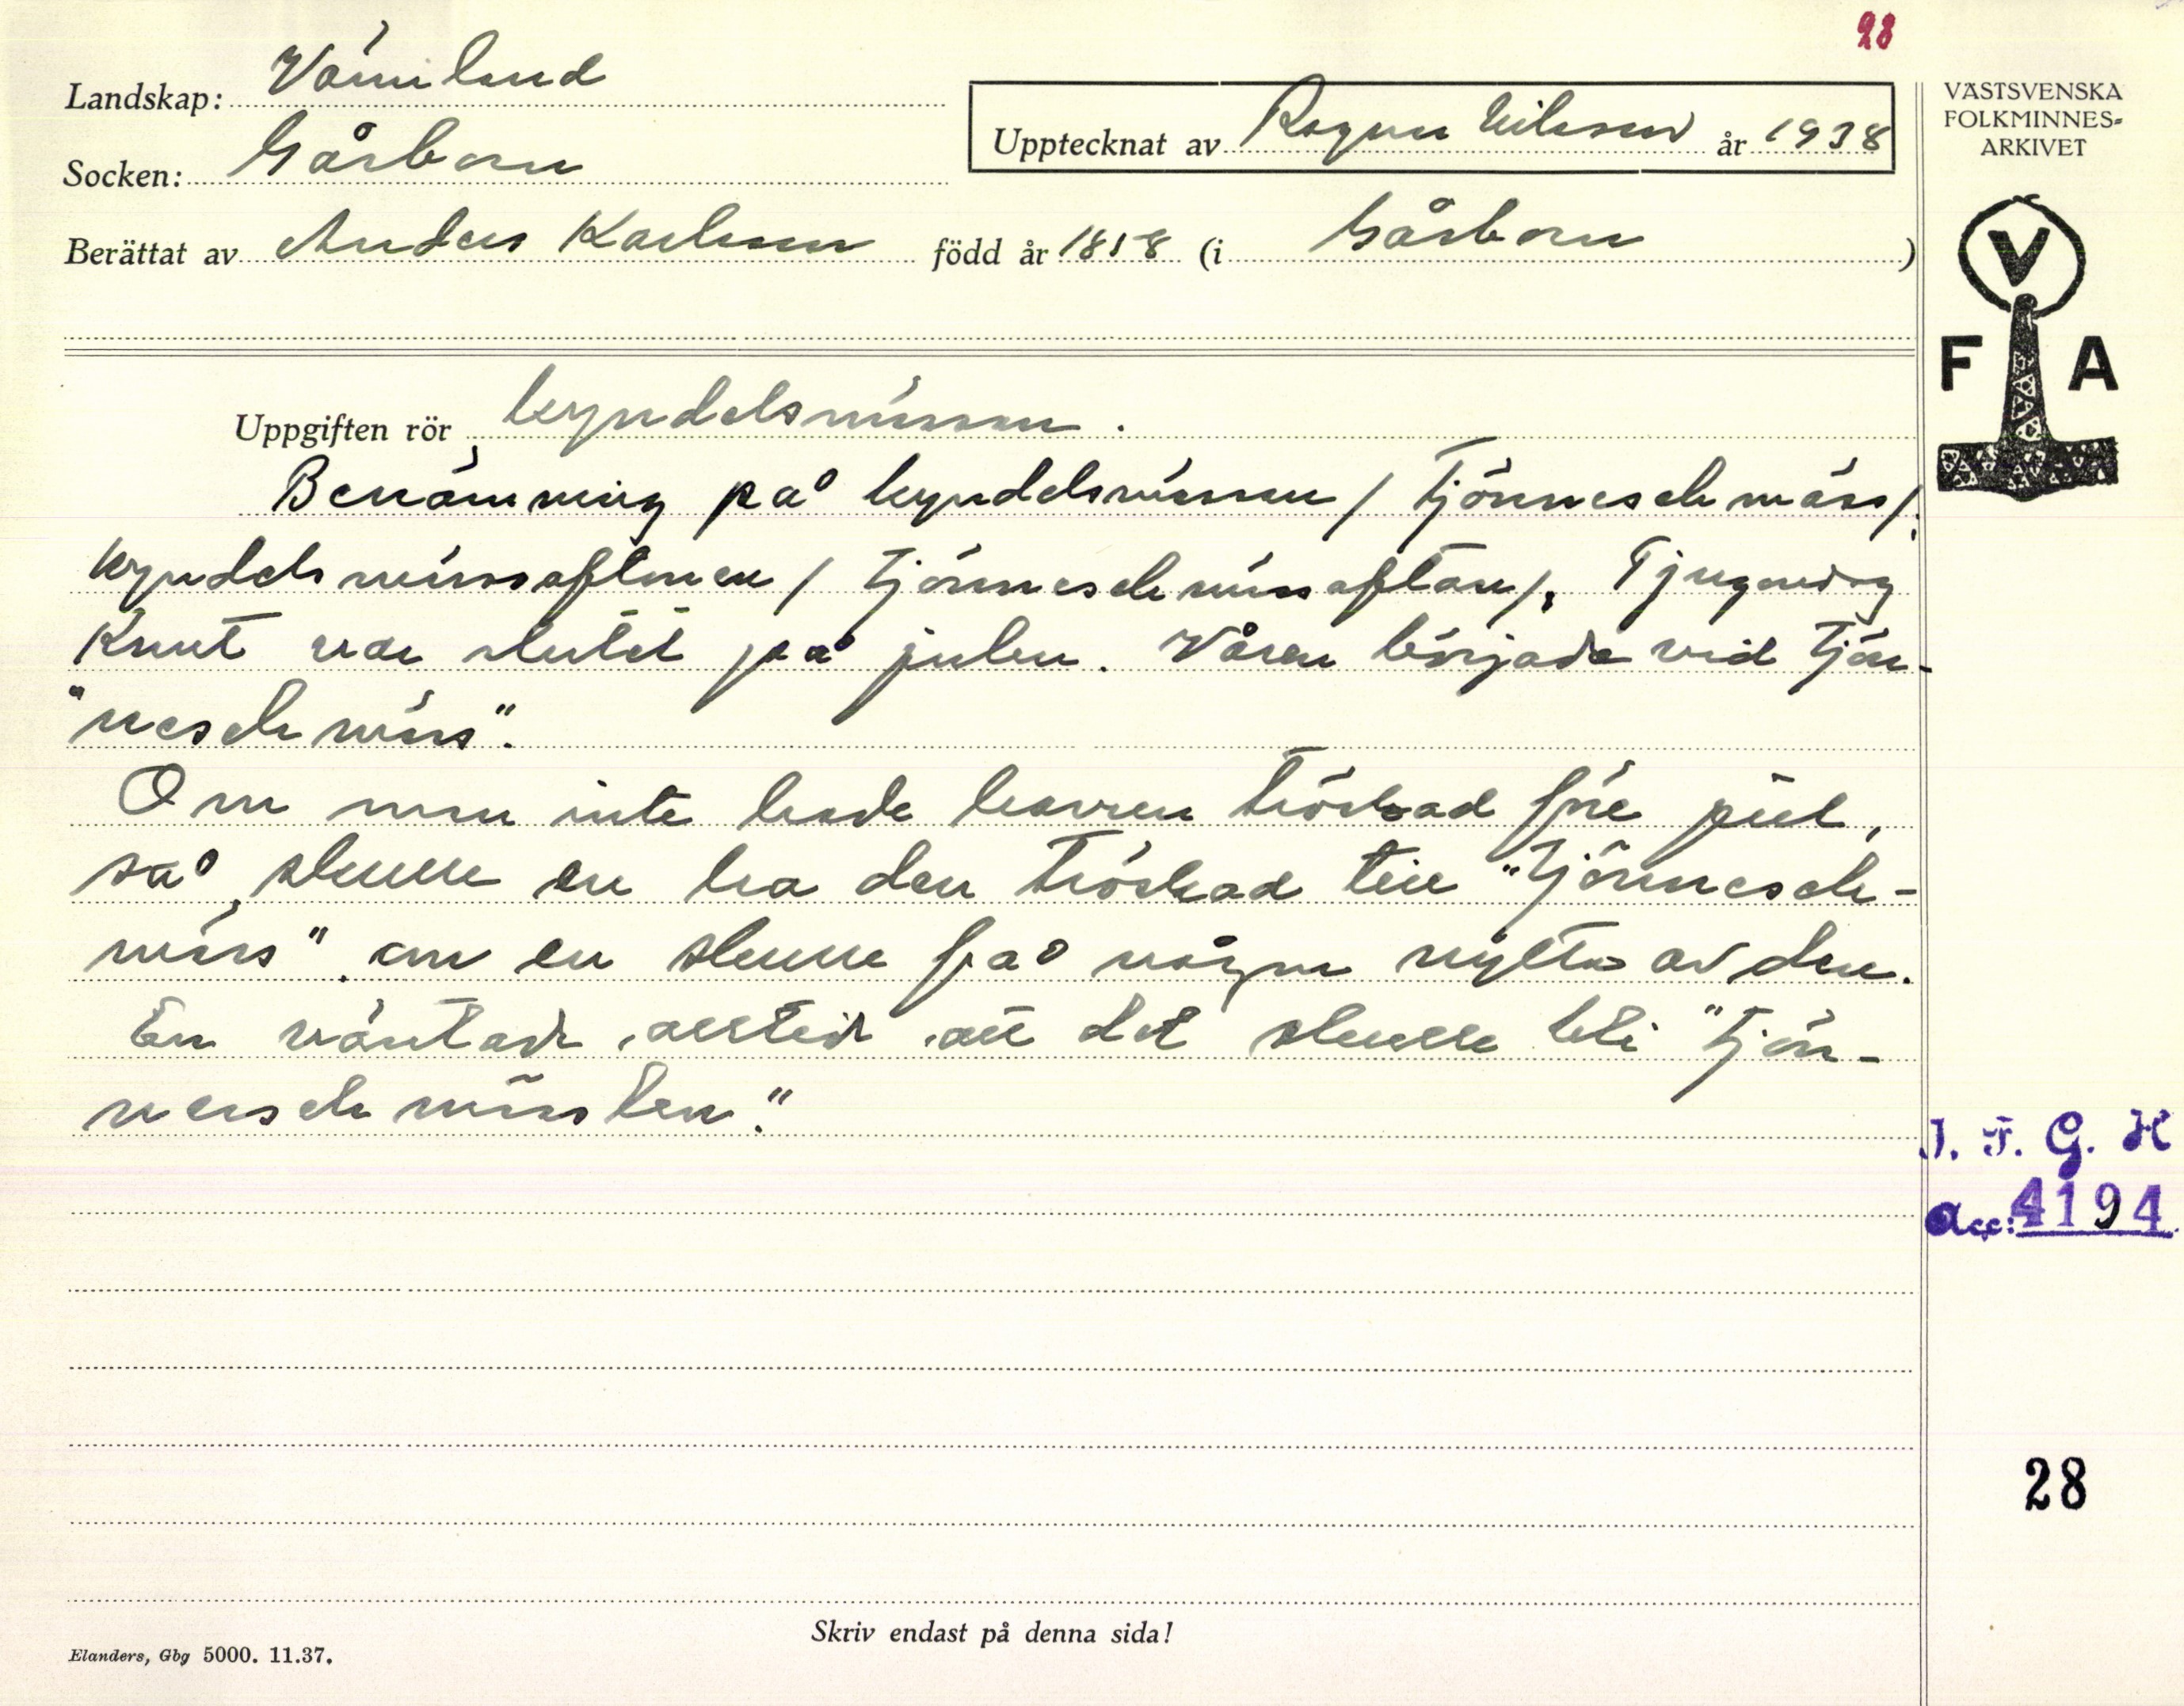 28
Landskap: Värmland
Socken: Gåsborn
Upptecknat av Ragnar Nilsson år 1938
Berättat av Anders Karlsson född år 1858 (i Gåsborn)
VÄSTSVENSKA
FOLKMINNES-
ARKIVET
V
F A
Uppgiften rör kyndelsmässan.
Benämning på kyndelsmässan / Tjönneselsmäss/,
kyndelsmässoaftonen / Tjönneselsmässaftan/, Tjugondag
Knut var slutet på julen. Våren började vid Tjön-
"neselsmäss".
Om man inte hade havren tröskad före jul,
så skulle en ha den tröskad till "Tjönnesels-
mäss" om en skulle få någon nytta av den.
En väntade alltid att det skulle bli "Tjön-
neselsmässken."
I. F. G. H
Acc: 4194.
28
Skriv endast på denna sida!
Elanders, Gbg 5000. 11.37.